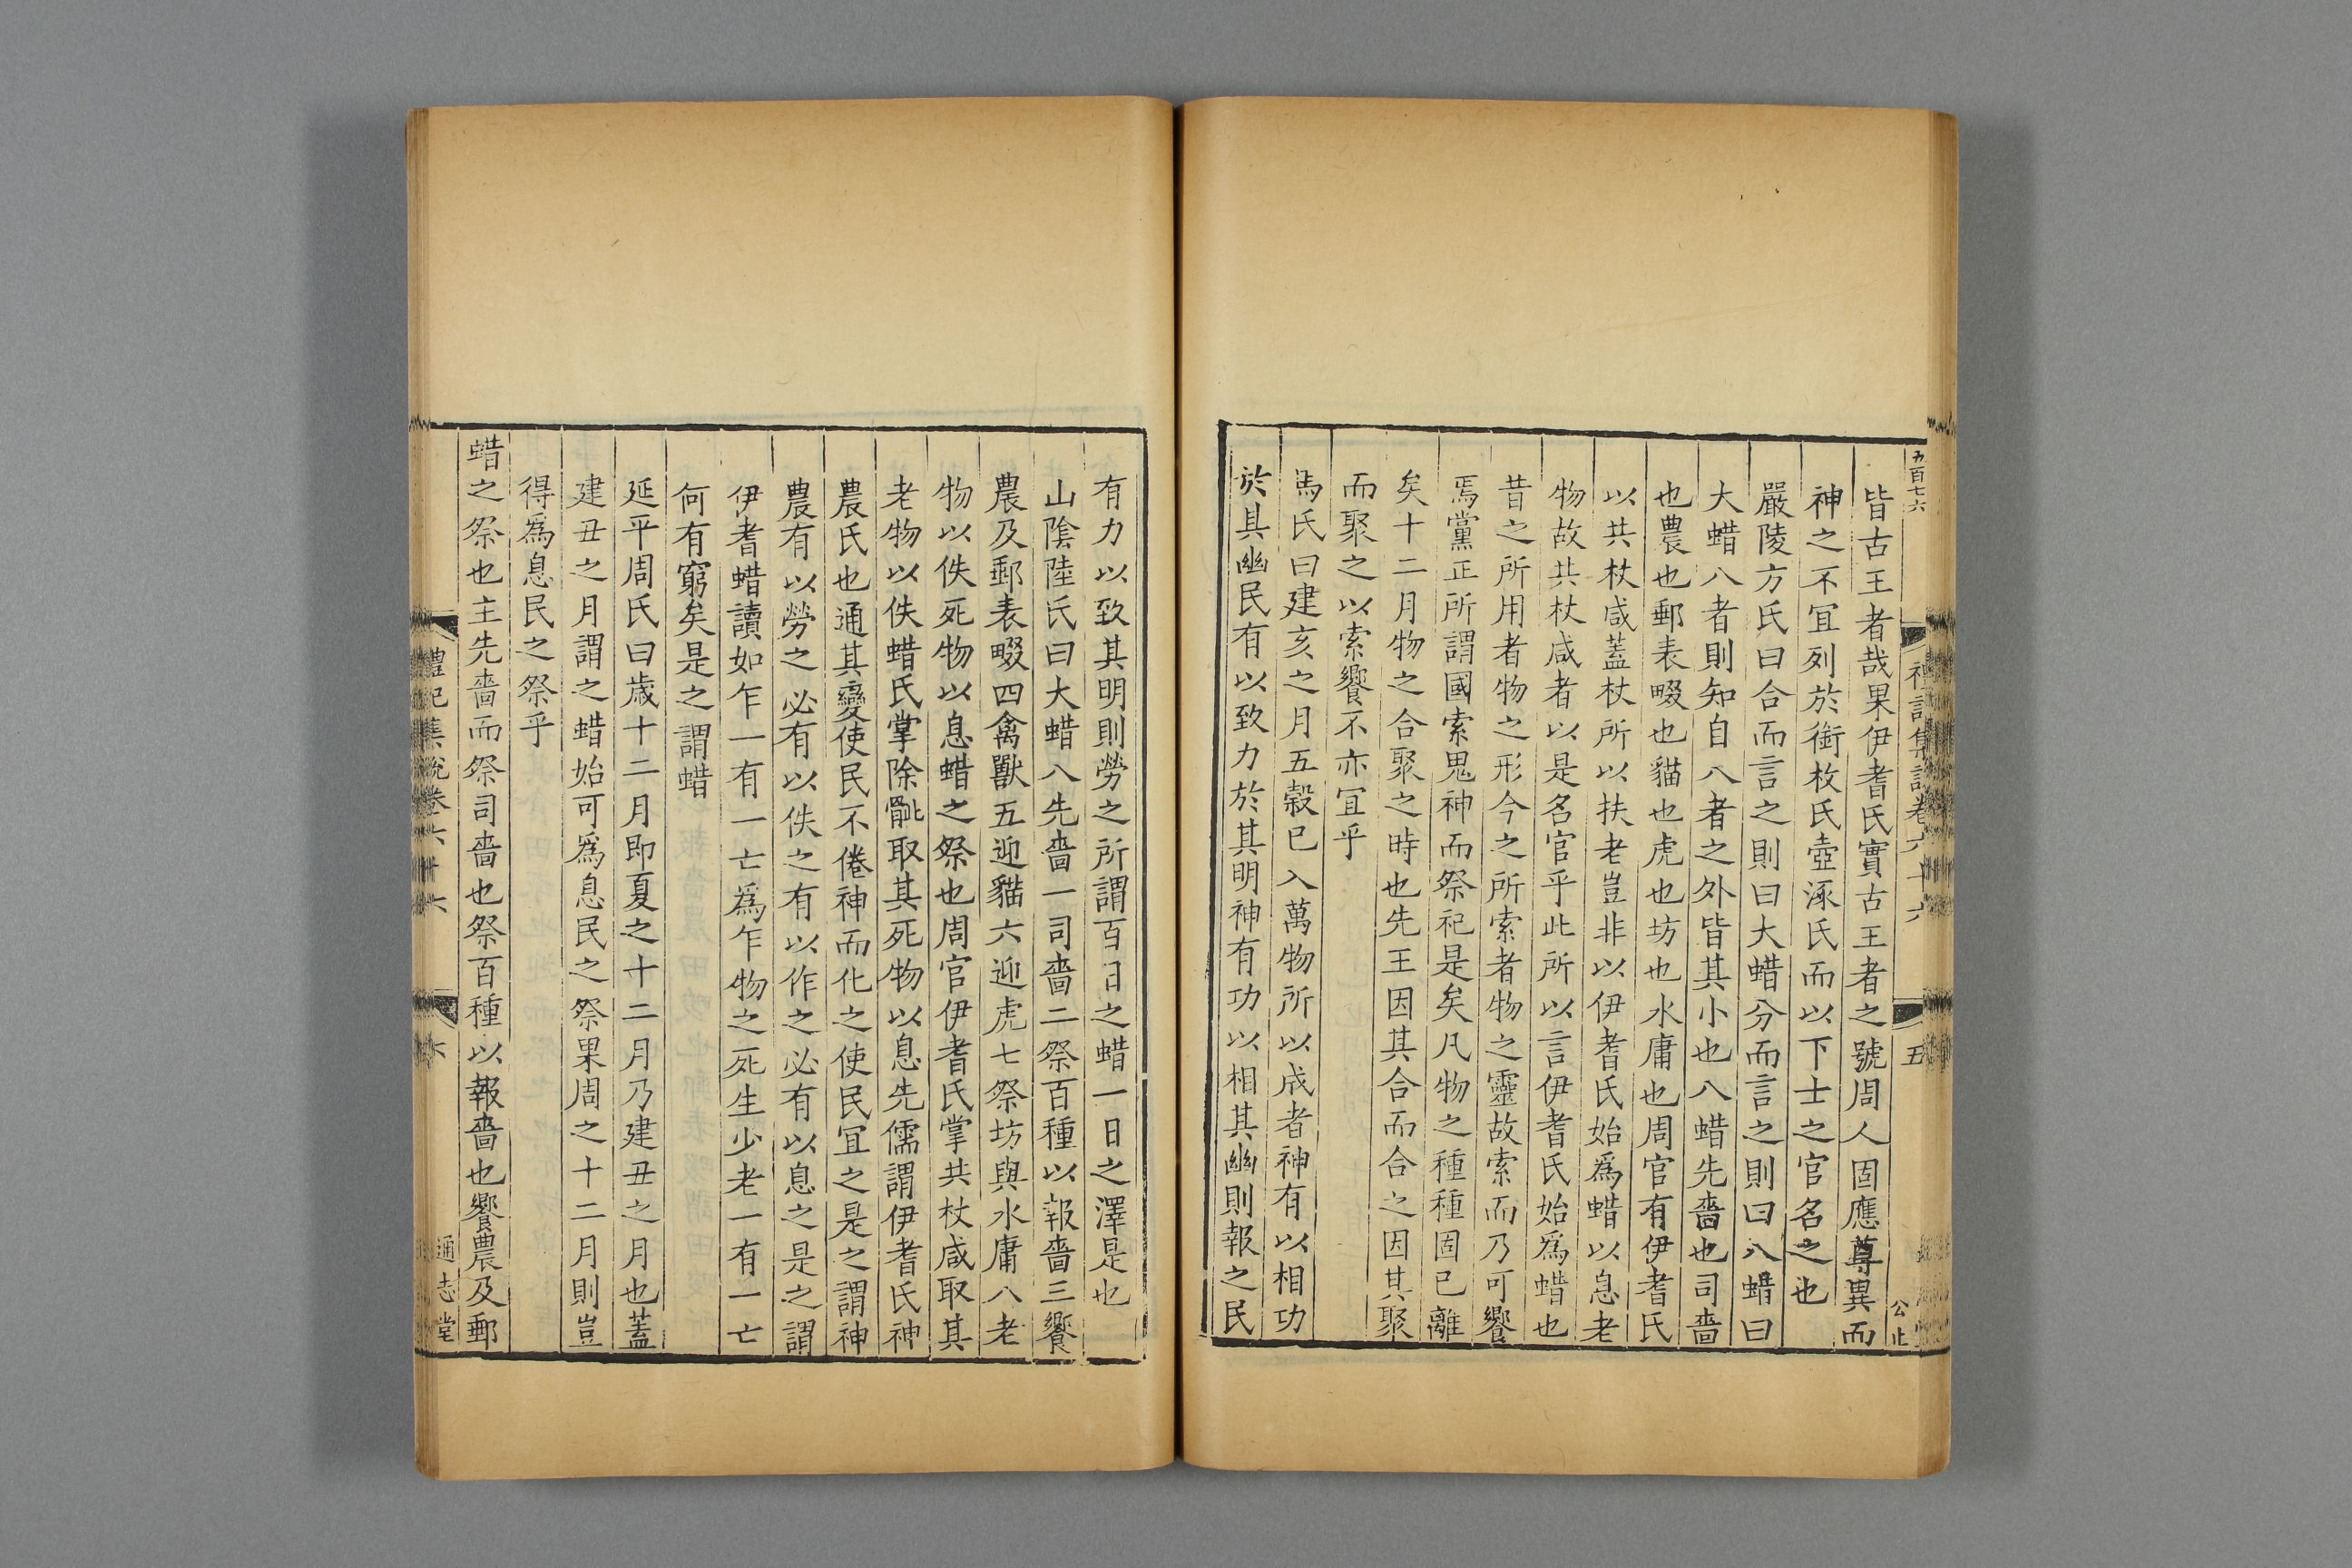 五百七六
皆古王者哉果伊耆氏實古王者之號周人固應尊異而
神之不宜列於銜枚氏壺涿氏而以下士之官名之也
嚴陵方氏曰合而言之則曰大蜡分而言之則曰八蜡曰
大蜡八者則知自八者之外皆其小也八蜡先嗇也司嗇
也農也郵表畷也貓也虎也坊也水庸也周官有伊耆氏
以共杖咸蓋杖所以扶老豈非以伊耆氏始爲蜡以息老
物故共杖咸者以是名官乎此所以言伊耆氏始爲蜡也
昔之所用者物之形今之所索者物之靈故索而乃可饗
焉黨正所謂國索鬼神而祭祀是矣凡物之種種固已離
矣十二月物之合聚之時也先王因其合而合之因其聚
而聚之以索饗不亦宜乎
馬氏曰建亥之月五穀已入萬物所以成者神有以相功
於其幽民有以致力於其明神有功以相其幽則報之民
五
公止
有力以致其明則勞之所謂百日之蜡一日之澤是也
山陰陸氏曰大蜡八先嗇一司嗇二祭百種以報嗇三饗
農及郵表畷四禽獸五迎貓六迎虎七祭坊與水庸八老
物以佚死物以息蜡之祭也周官伊耆氏掌共杖咸取其
老物以佚蜡氏掌除骴取其死物以息先儒謂伊耆氏神
農氏也通其變使民不倦神而化之使民宜之是之謂神
農有以勞之必有以佚之有以作之必有以息之是之謂
伊耆蜡讀如乍一有一亡爲乍物之死生少老一有一亡
何有窮矣是之謂蜡
延平周氏曰歲十二月即夏之十二月乃建丑之月也蓋
建丑之月謂之蜡始可爲息民之祭果周之十二月則豈
得爲息民之祭乎
蜡之祭也主先嗇而祭司嗇也祭百種以報嗇也饗農及郵
禮記集說卷六十六
六
通志堂